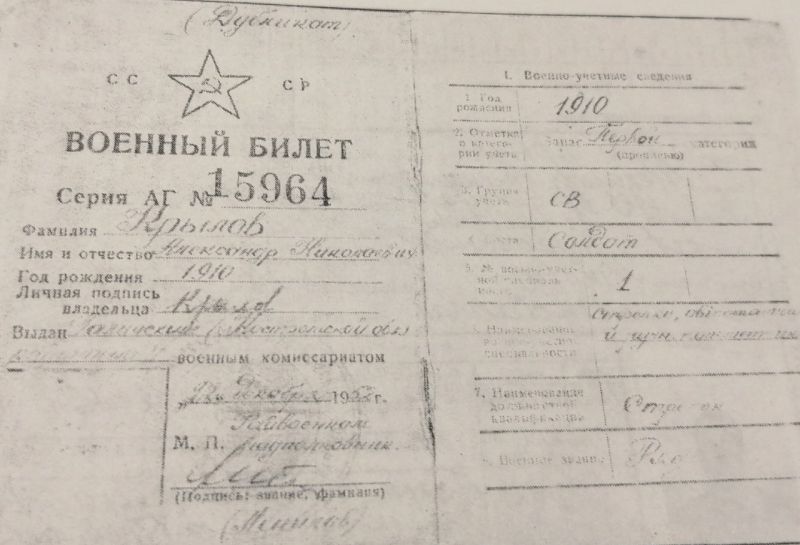 (Дубликат)
СС СР
ВОЕННЫЙ БИЛЕТ
Серия АГ № 15964
Фамилия Крылов
Имя и отчество Александр Николаевич
Год рождения 1910
Личная подпись
владельца Крылов
Выдан Галичским Костромской обл
военным комиссариатом
Декабря 195 г.
Райвоенком
М. П. подполковник.
(Подпись, звание, фамилия)
1. Военно-учетные сведения
1. Год
рождения 1910
2. Отметка
о катего-
рии учета Запас Первой категории
(прописью)
3. Группа
учета СВ
Солдат
5. № военно-учет-
ной специаль-
ности 1
6. Наименование
военно-учетной
специальности Стрелки,
7. Наименование
должностной
квалификации Стрелок
8. Военное звание Ряд